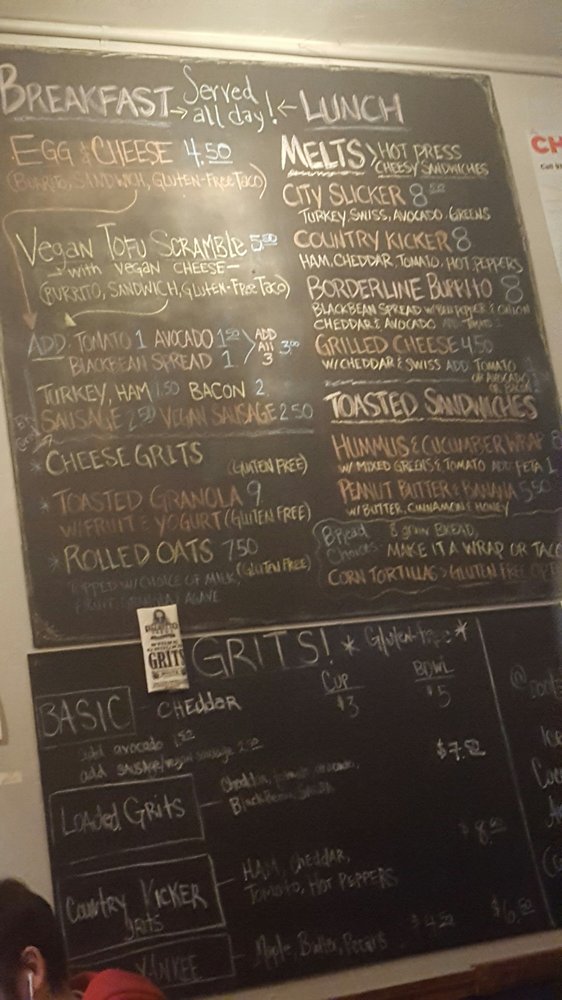 BREAKFAST Served all day! LUNCH
EGG & CHEESE 4.50
(BURRITO, SANDWICH, GLUTEN-FREE TACO)
VEGAN TOFU SCRAMBLE 5.50
with VEGAN CHEESE
(BURRITO, SANDWICH, GLUTEN-FREE TACO)
ADD: TOMATO 1 AVOCADO 1.50
BLACKBEAN SPREAD 1
ADD All 3 3.00
TURKEY, HAM 1.50 BACON 2
SAUSAGE 2.50 VEGAN SAUSAGE 2.50
* CHEESE GRITS (GLUTEN FREE)
* TOASTED GRANOLA 9
W/FRUIT & YOGURT (GLUTEN FREE)
* ROLLED OATS 7.50
(GLUTEN FREE)
TOPPED W/CHOICE OF MILK,
AGAVE
MELTS HOT PRESS
CHEESY SANDWICHES
CITY SLICKER 8
TURKEY, SWISS, AVOCADO, GREENS
COUNTRY KICKER 8
HAM, CHEDDAR, TOMATO, HOT PEPPERS
BORDERLINE BURRITO 8
BLACKBEAN SPREAD W/BELL PEPPER & ONION
CHEDDAR & AVOCADO
GRILLED CHEESE 4.50
W/CHEDDAR & SWISS ADD TOMATO
OR AVOCADO
TOASTED SANDWICHES
HUMMUS & CUCUMBER WRAP 8
W/ MIXED GREENS & TOMATO ADD FETA 1
PEANUT BUTTER & BANANA 5.50
W/ BUTTER, CINNAMON & HONEY
Bread Choices 8 grain BREAD,
MAKE IT A WRAP OR TACO
CORN TORTILLAS > GLUTEN FREE
CH
GRITS
GRITS! * Gluten-free *
CUP BOWL
BASIC CHEDDAR $3 $5
add avocado 1.50
add sausage/vegan sausage 2.50
$7.50
Loaded Grits
Country Kicker Grits HAM, Cheddar,
TOMATO, HOT PEPPERS
YANKEE Maple, Butter, Pecans